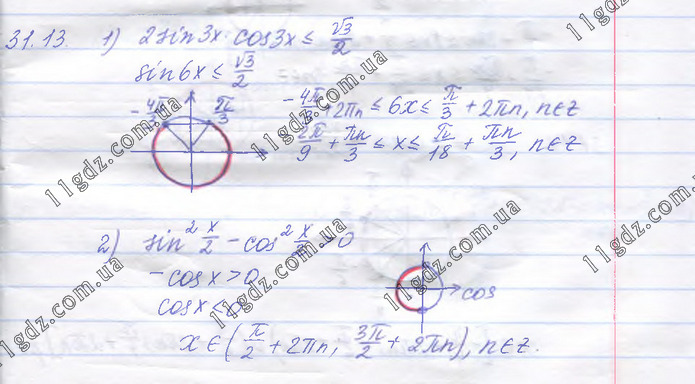 31.13. 1) 2sin3x·cos3x ≤ √3/2
sin6x ≤ √3/2
-4π/3 π/3
-4π/3 + 2πn ≤ 6x ≤ π/3 + 2πn, n∈Z
-2π/9 + πn/3 ≤ x ≤ π/18 + πn/3, n∈Z
2) sin² x/2 - cos² x/2 > 0
-cosx > 0
cosx < 0
cos
x ∈ (π/2 + 2πn; 3π/2 + 2πn), n∈Z.
11gdz.com.ua
11gdz.com.ua
11gdz.com.ua
11gdz.com.ua
11gdz.com.ua
11gdz.com.ua
11gdz.com.ua